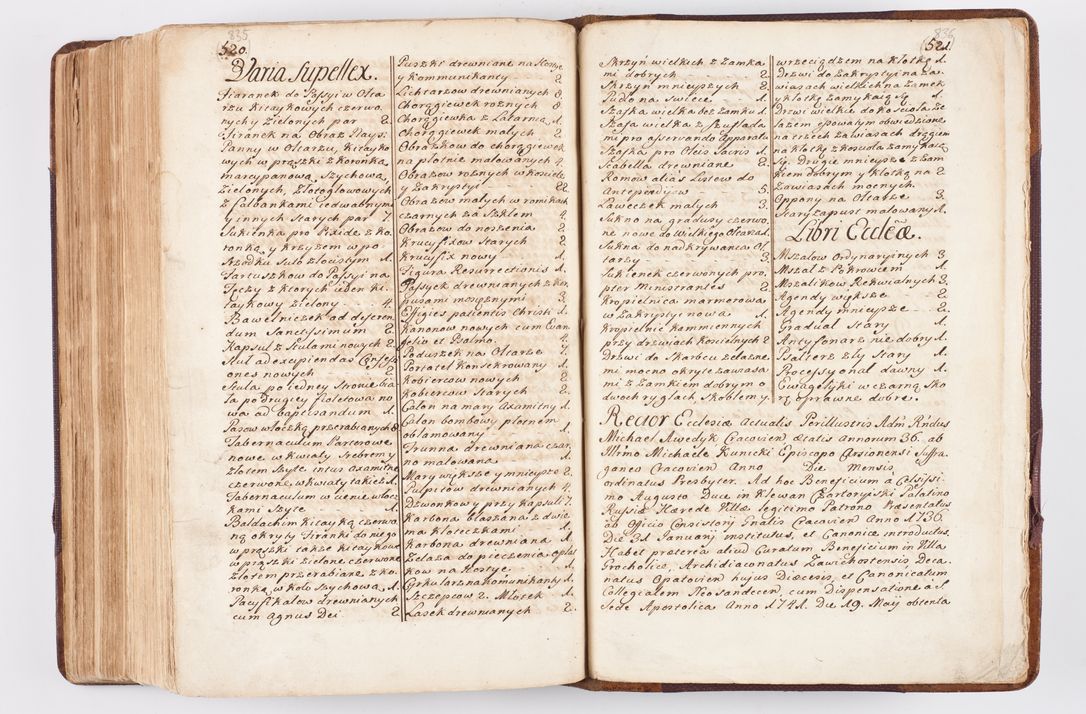 835
520.
Varia Supellex.
Firanek do Passyi w Olta
rzu Kitaykowych czerwo
nych y Zielonych par 2.
Firanek na Obraz Nays:
Panny w Oltarzu, Kitayko
wych w prąszki z Koronką
marcypanową, Szychową,
Zielonych, Złotogłowowych
z Falbankami iedwabnymi
y innych Starych par 7.
Sukienka pro Pixide z ko
ronką y krzyżem w po
srzodku suto złocistym 1.
Fartuszkow do Passyi na
Tęczy z ktorych ieden ki
taykowy zielony 4.
Bawełniczek ad deferen
dum Sanctissimum 2.
Kapsul z Stulami nowych 2
Stuł ad excipiendas Confessi
ones nowych 2.
Stuła po iedney Stronie bia
ła po drugiey Fioletowa no
wa ad baptisandum 1.
Pasow włoczką przerabianych 3
Tabernaculum Parterowe
nowe w kwiaty Srebrem y
złotem Szyte, intus Axamitne
czerwone, w kwiaty takież 1.
Tabernaculum w cenie włocz
kami Szyte 1.
Baldachim Kitayką czerwo
ną okryty Firanki do niego
w prąszki także kitaykowe
w prąszki zielone czerwone
złotem przerabiane z ko
ronką w koło szychową 1.
Pacyfikałow drewnianych
cum Agnus Dei 2.
Puszki drewniane na Hostye
y kommunikanty 2.
Lichtarzow drewnianych 8.
Chorągiewek roznych 8.
Chorągiewka z Latarnią 1.
Chorągiewek małych 2.
Obrazkow do chorągiewek
na płotnie malowanych 4.
Obrazow roznych w kosciele
y Zakrystyi 22.
Obrazow małych w romikach
czarnych za Szkłem 4.
Obrazow do noszenia 2.
Krucyfixow Starych 2.
Krucyfix nowy 1.
Figura Resurrectionis 1.
Passyek drewnianych z kor
pusami mosiężnymi 3.
Effigies patientis Christi 1.
Kanonow nowych cum Evan
gelio et Psalmo. 4.
Poduszek na Oltarze 7.
Portatel Konsekrowany 1.
Kobiercow nowych 2.
Kobiercow Starych 2.
Całon na mary Axamitny 1.
Całon bombowy płotnem
obłamowany 1.
Trunna drewniana czar
no malowana 1.
Mary większe y mnieysze 2.
Pulpitow drewnianych 4.
Dzwonkow y przy kapsuli 7.
Karbona blaszana z dwie
ma kłoteczkami 1.
Karbona drewniana 1.
Zelaza do pieczenia opłat
kow na Hostye 1.
Cyrkularz na Komunikanty 1.
Szczypcow 2. Młotek 1.
Lasek drewnianych 2.
836
521.
Skrzyn wielkich z Zamka
mi dobrych 2.
Skrzyn mnieyszych 2.
Pudło na Swiece 1.
Szafka wielka bez Zamku 1.
Szafa wielka z Szuflada
mi pro asservando Apparatu
Szafka pro Oleis Sacris 1.
Scabella drewniane 2.
Romow alias Listew do
Antepedyow 5.
Ławeczek małych 3.
Sukno na gradusy czerwo
ne nowe do Wielkiego Oltarza 1.
Sukna do nadkrywania Ol
tarzy 3.
Sukienek czerwonych pro
pter Ministrantes 2.
Kropielnica marmurowa
w Zakrystyi nowa 1.
Kropielnic kamiennych
przy drzwiach koscielnych 2.
Drzwi do Skarbcu żelazne
mi mocno okryte zawiasa
mi z Zamkiem dobrym o
dwoch ryglach, Skoblem y
wrzeciądzem na kłotkę 1.
Drzwi do Zakrystyi na Za
wiasach wielkich na Zamek
y kłotkę zamykaią Się 1.
Drzwi wielkie do koscioła że
lazem y powałym obwiedzione
na trzech zawiasach drągiem
na kłotkę z koscioła zamykaią
Się. Drugie mnieysze z Zam
kiem dobrym y kłotką na 2
Zawiasach mocnych.
Oppony na Oltarze 2.
Stary zapust malowany 1.
Libri Ecclæ.
Mszałow Ordynaryinych 3.
Mszał z Pokrowcem 1.
Mszalikow Rekwialnych 3.
Agendy większe 2.
Agendy mnieysze 2.
Graduał Stary 1.
Antyfonarz nie dobry 1.
Psałterz zły Stary 1.
Processyonał dawny 1.
Ewagelyki w czarną sko
rę oprawne dobre.
Rector Ecclesiæ Actualis Perillustris Adm. Rńdus
Michael Awedyk Cracovien ætatis Annorum 36. ab
Illrmo Michaele Kunicki Episcopo Arsionensi Suffra
ganeo Cracovien Anno Die Mensis
ordinatus Presbyter. Ad hoc Beneficium a Celsissi
mo Augusto Duce in Klewan Czartoryiski Palatino
Russiæ Hærede Villæ legitimo Patrono Præsentatus
ab Officio Consistorij Gnalis Cracovien Anno 1736.
Die 31 Januarij institutus, et Canonice introductus.
Habet præterea aliud Curatum Beneficium in Villa
Grocholice, Archidiaconatus Zawichostensis Deca
natus Opatovien hujus Diæcesis et Canonicatum
Collegialem Neosandecen, cum Dispensatione a S.
Sede Apostolica Anno 1741. Die 19. Maij obtenta